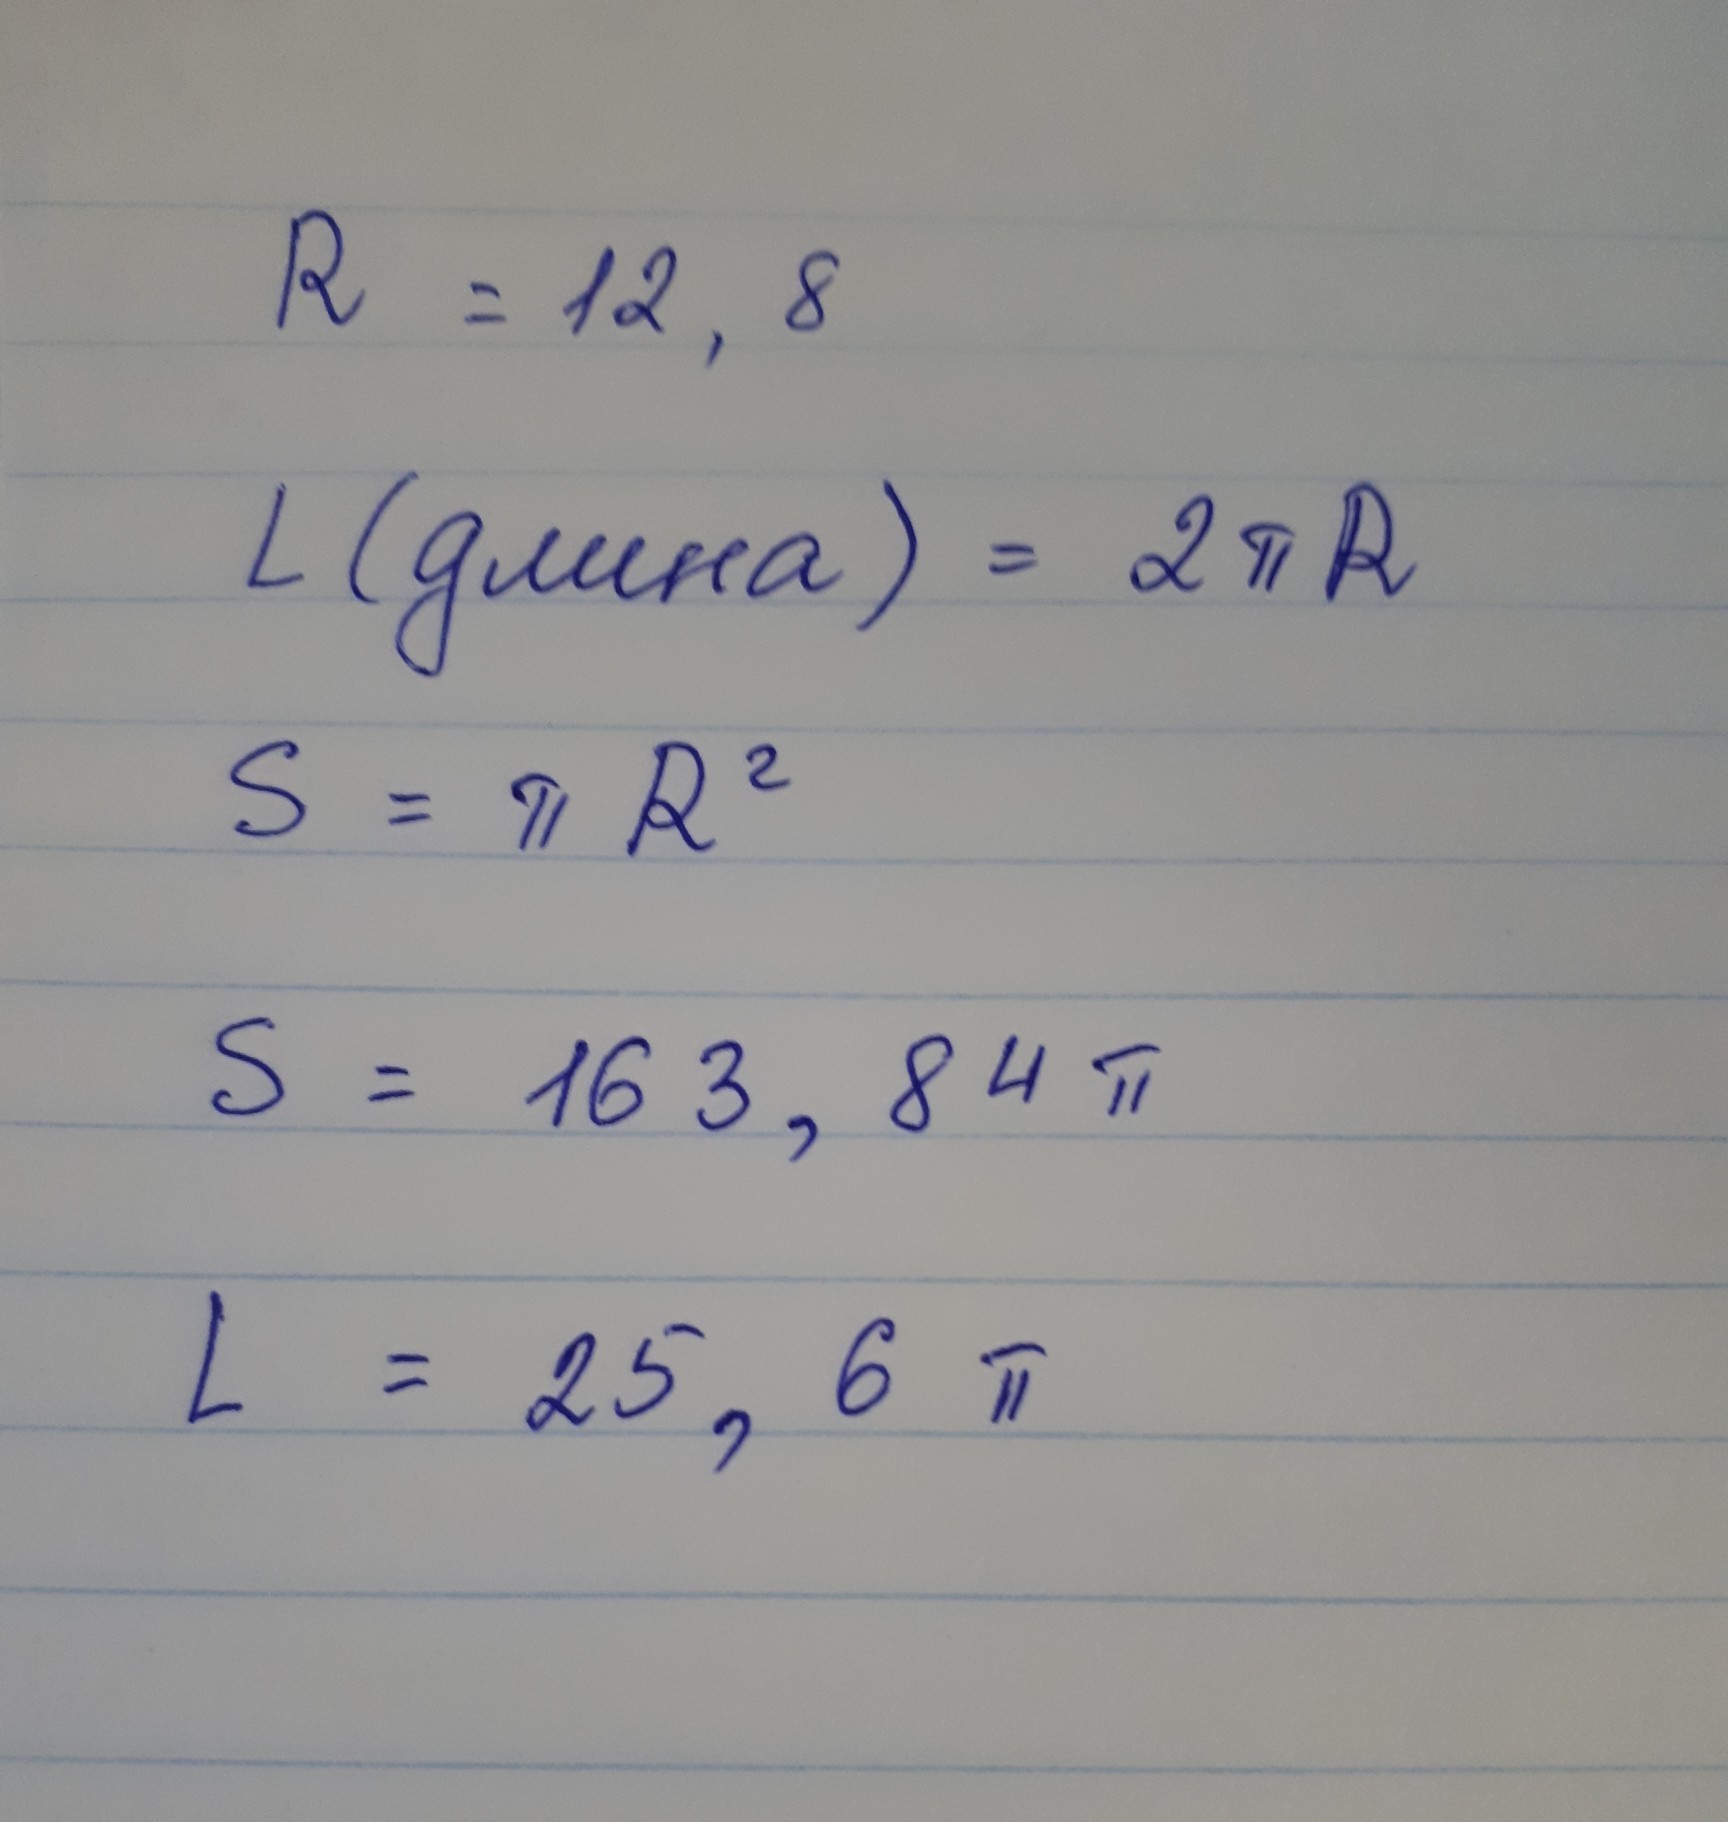 R = 12, 8
L (длина) = 2πR
S = πR²
S = 163, 84π
L = 25, 6π